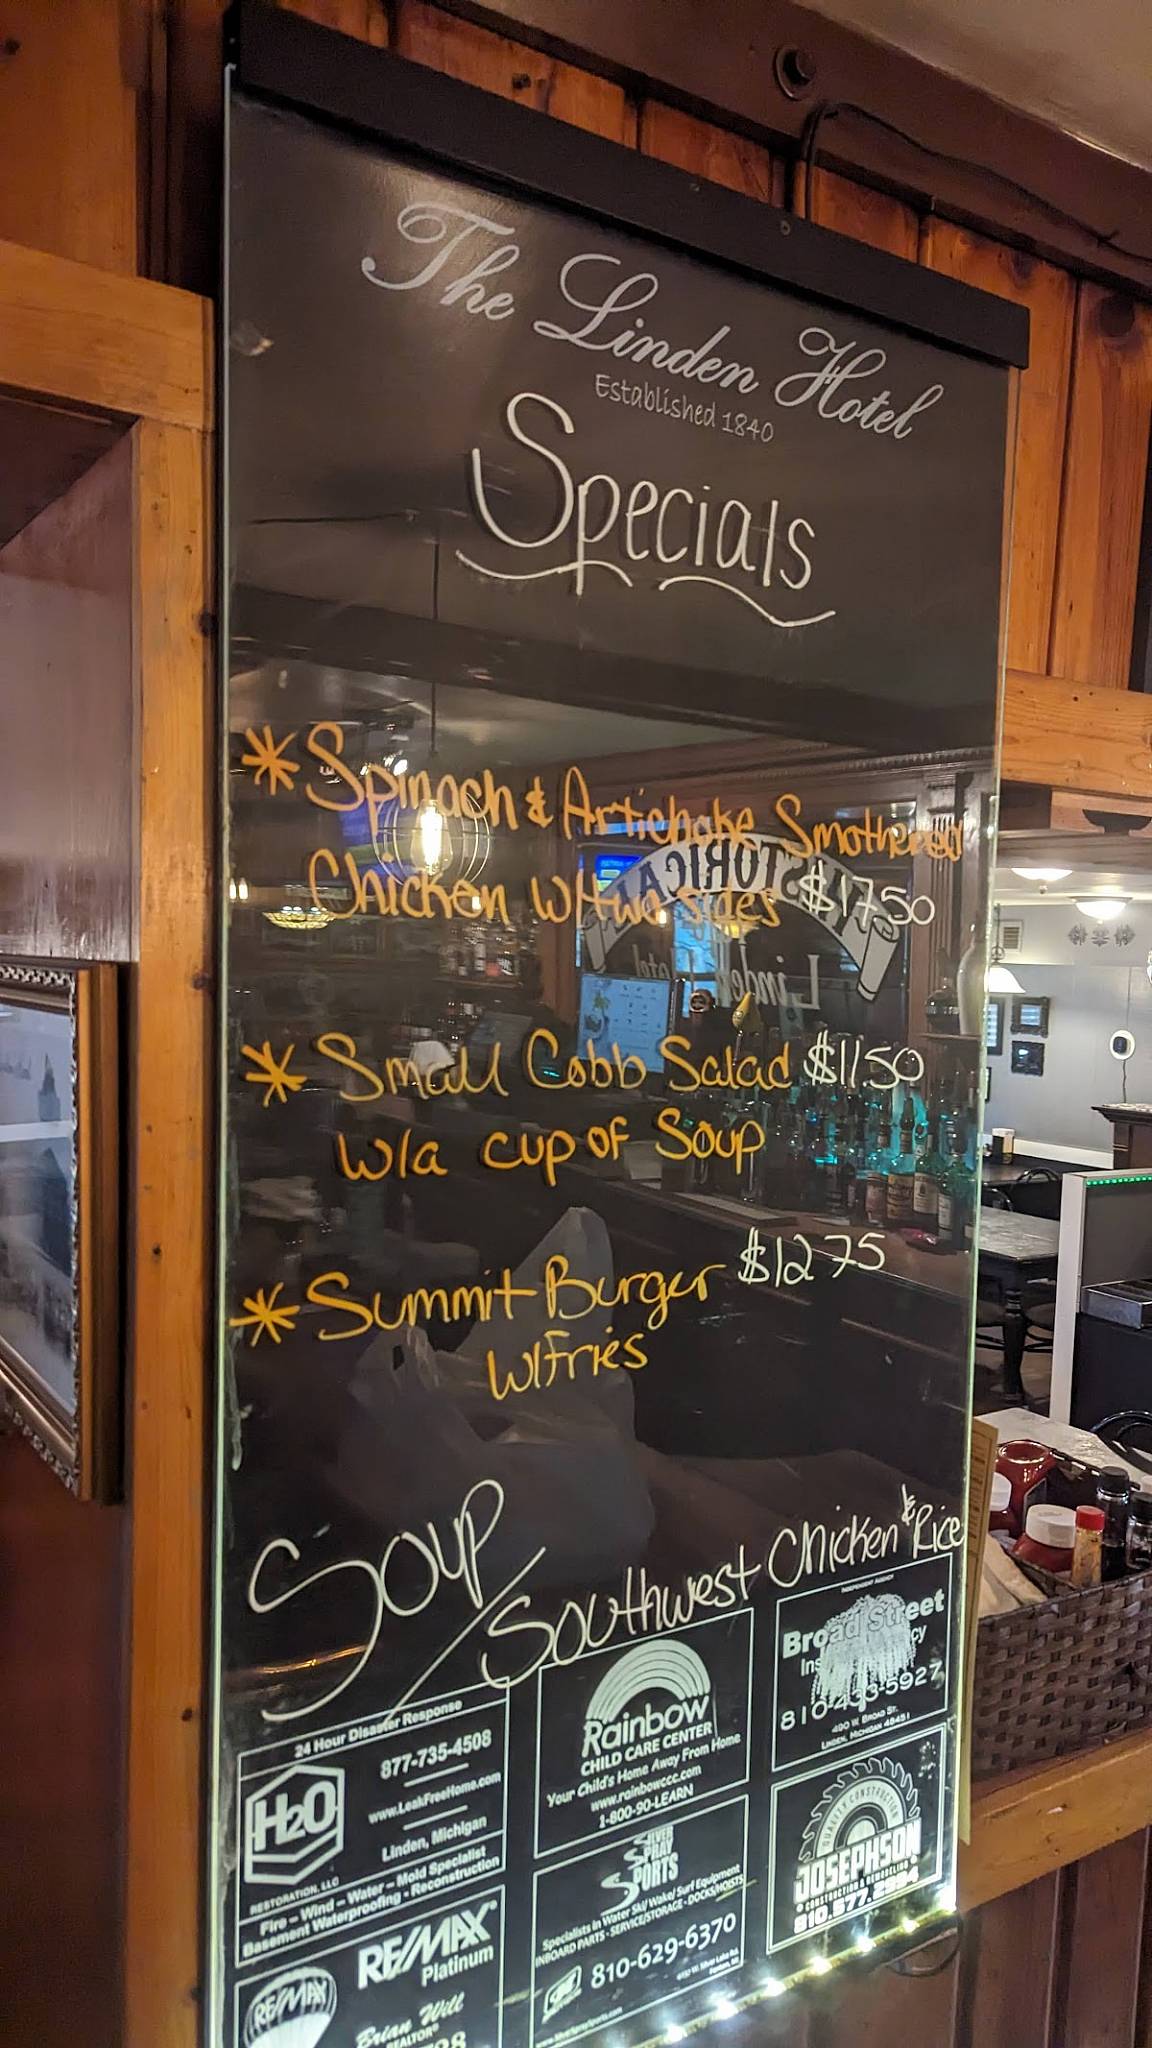 The Linden Hotel
Established 1840
Specials
* Spinach & Artichoke Smothered
Chicken W/two sides $17.50
* Small Cobb Salad $11.50
W/a cup of Soup
* Summit Burger $12.75
W/Fries
Soup/Southwest Chicken & Rice
24 Hour Disaster Response
877-735-4508
www.LeakFreeHome.com
Linden, Michigan
H2O
RESTORATION, LLC
Fire – Wind – Water – Mold Specialist
Basement Waterproofing - Reconstruction
Rainbow
CHILD CARE CENTER
Your Child's Home Away From Home
www.rainbowccc.com
1-800-90-LEARN
INDEPENDENT AGENCY
Broad Street
810-433-5927
490 W. BROAD ST.
LINDEN, MICHIGAN 48451
RE/MAX
Platinum
RE/MAX
Brian Will
REALTOR®
SILVER
SPRAY
SPORTS
Specialists in Water Ski/Wake/Surf Equipment
INBOARD PARTS - SERVICE/STORAGE - DOCKS/HOISTS
810-629-6370
QUALITY CONSTRUCTION
JOSEPHSON
CONSTRUCTION & REMODELING
810.577.2994
HISTORICAL
Linden Hotel